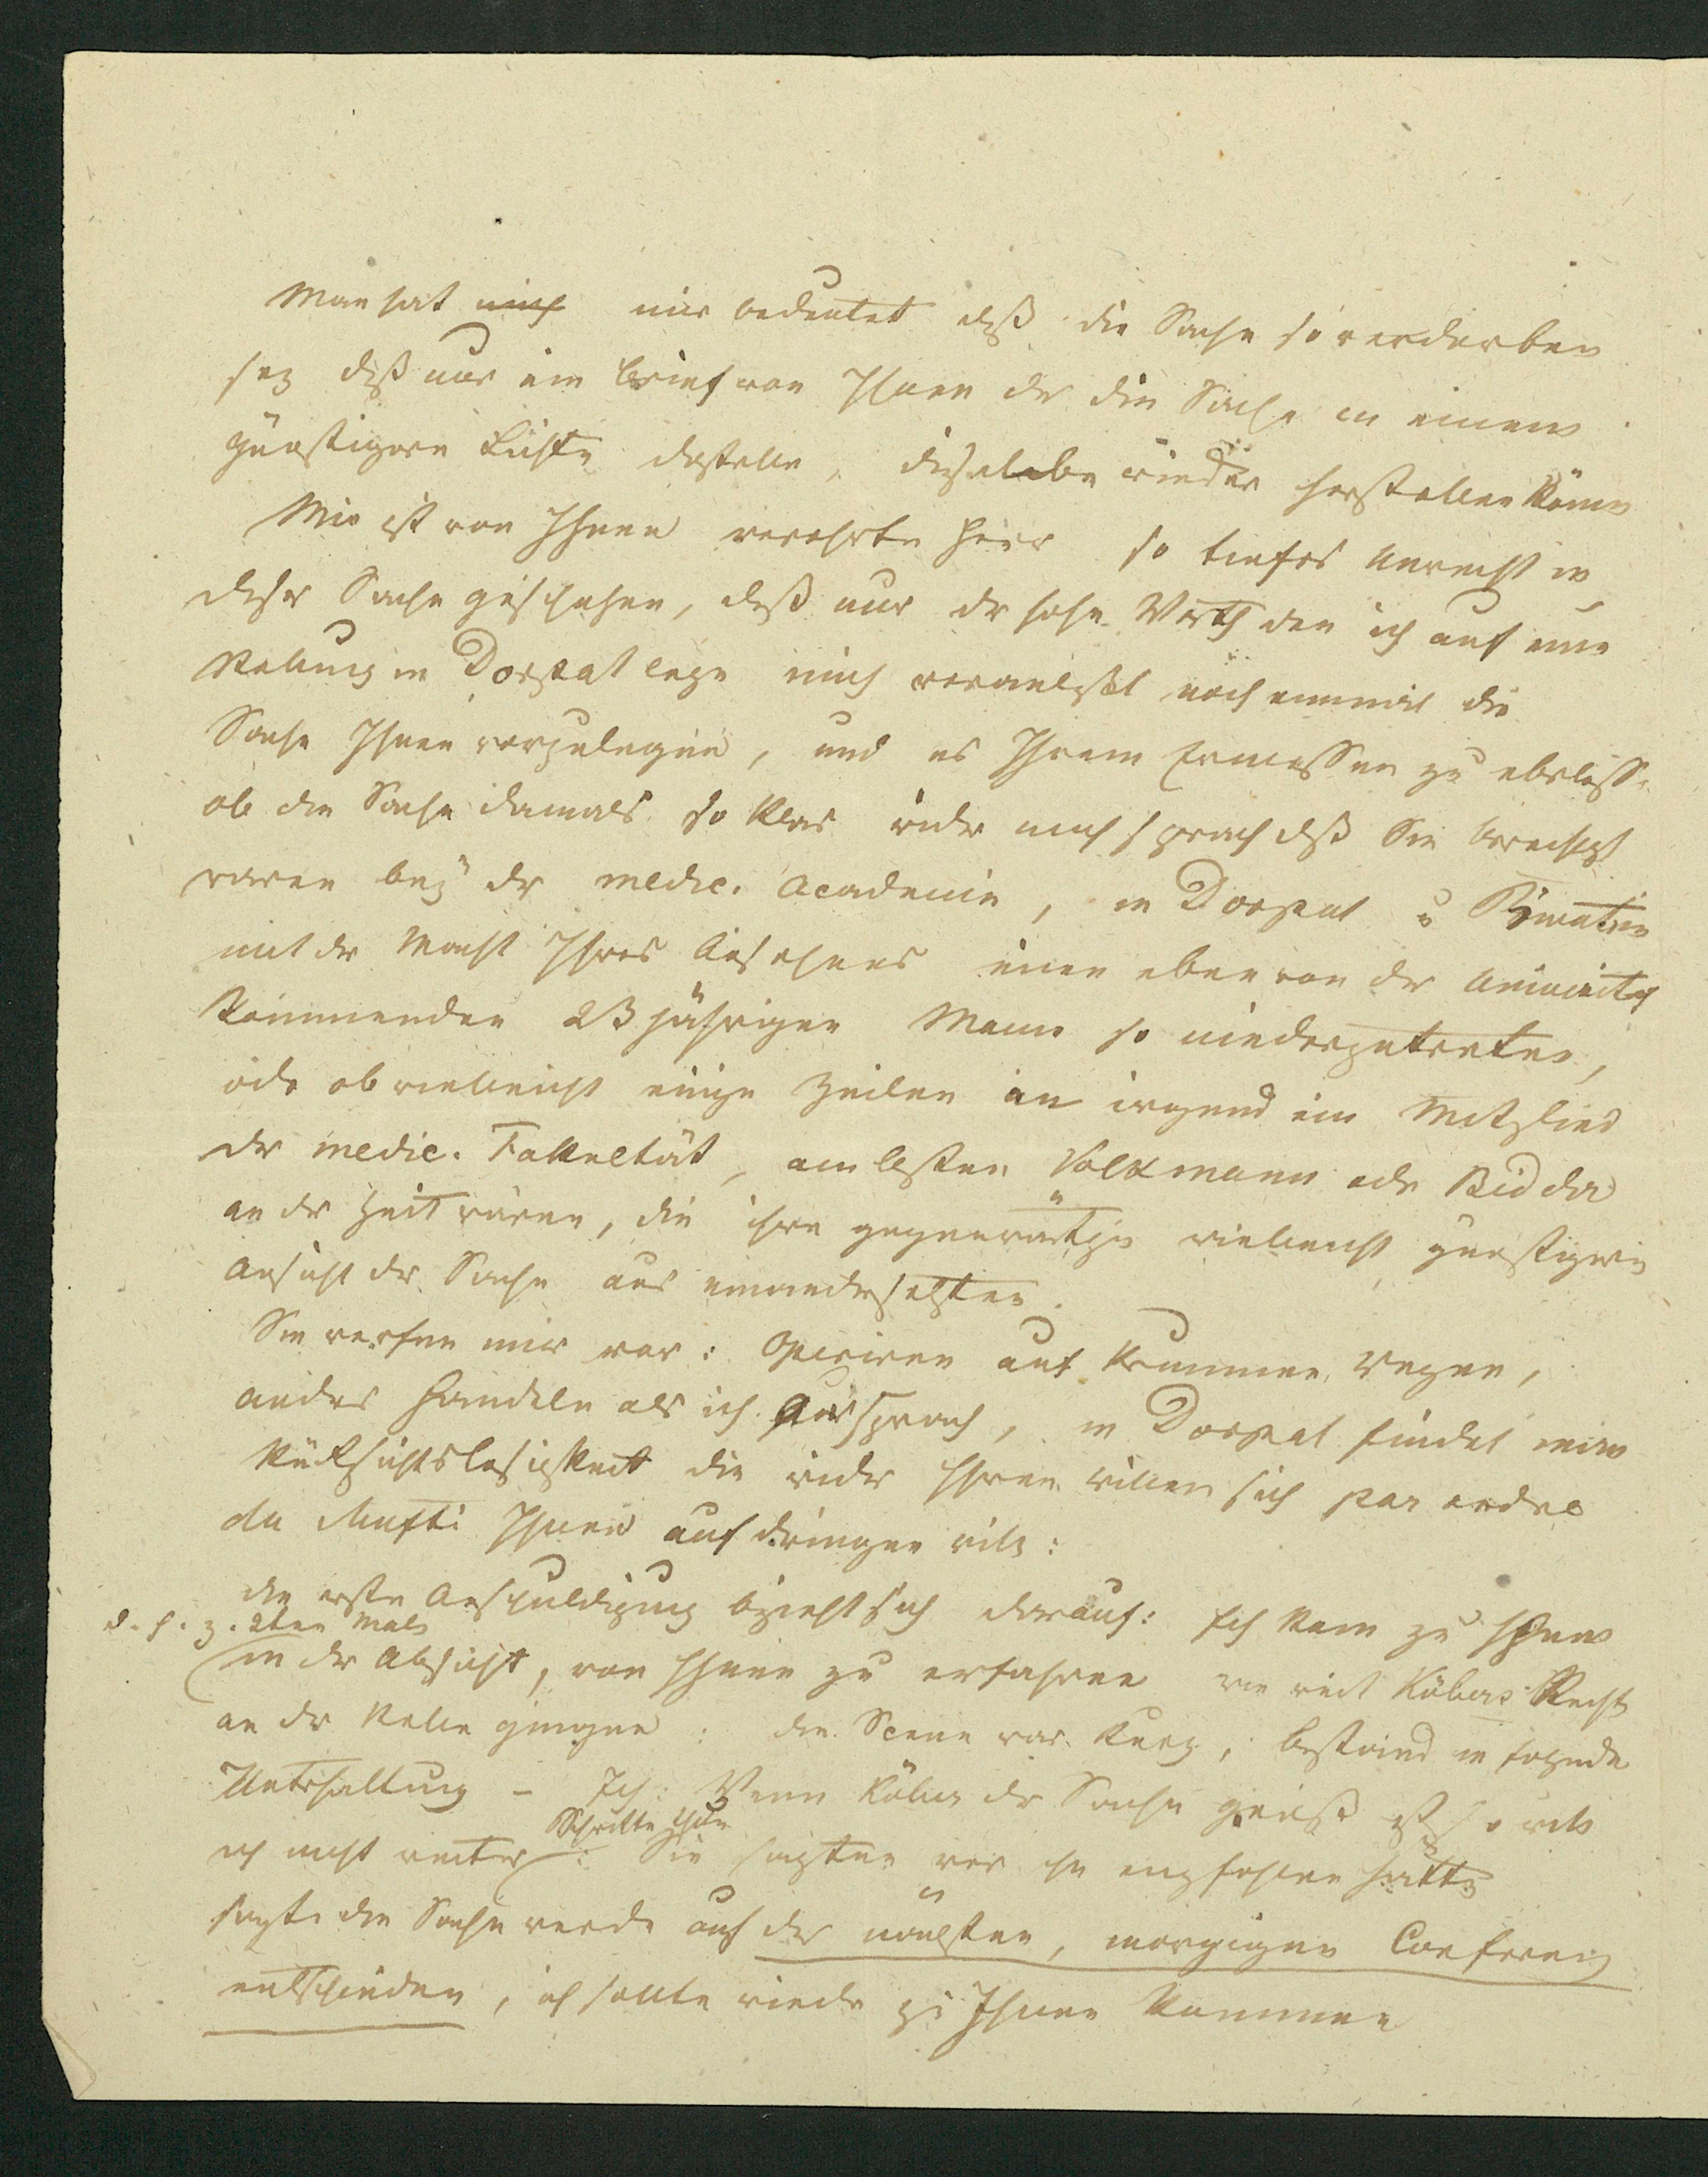 Man hat mich mir bedeutet daß die Sache so verdorben
sey daß nur ein Brief von Ihnen der die Sache in einem
günstigern Lichte darstelle, dieselbe wieder herstellen könne
Mir ist von Ihnen verehrter Herr so tiefes Unrecht in
dieser Sache geschehen, daß nur der hohe Werth den ich auf eine
Stellung in Dorpat lege mich veranlaßt noch einmal die
Sache Ihnen vorzulegen, und es Ihrem Ermessen zu überlassen
ob die Sache damals so klar wider mich sprach daß Sie berechtigt
waren bey der medic. Academie, in Dorpat u
mit der Macht Ihres Ansehens einen eben von der Universität
kommenden 23 jährigen Mann so niederzutreten,
oder ob vielleicht einige Zeilen an irgend ein Mitglied
der medic. Fakultät, am besten Volkmann oder Bidder
an der Zeit wären, die ihre gegenwärtige vielleicht günstigere
Ansicht der Sache aus einandersetzten.
Sie werfen mir vor: Operiren auf krummen Wegen,
anders Handeln als ich aussprach, in Dorpat findet man
Rücksichtslosigkeit die wider Ihren Willen sich par ordre
du Mufti Ihnen aufdringen will:
die erste Anschuldigung bezieht sich darauf: Ich kam zu Ihnen
d. h. z. 2ten Male
in der Absicht, von Ihnen zu erfahren wie weit Köbers Rechte
an der Stelle gingen: die Scene war kurz, bestand in folgender
Unterhaltung – Ich: Wenn Köber der Sache gewiß ist so will
ich nicht weiter Schritte thun: Sie sagten wer ihn empfohlen hätte
sagte die Sache werde auf der nächsten, morgigen Conferenz
entschieden, ich sollte wieder zu Ihnen kommen